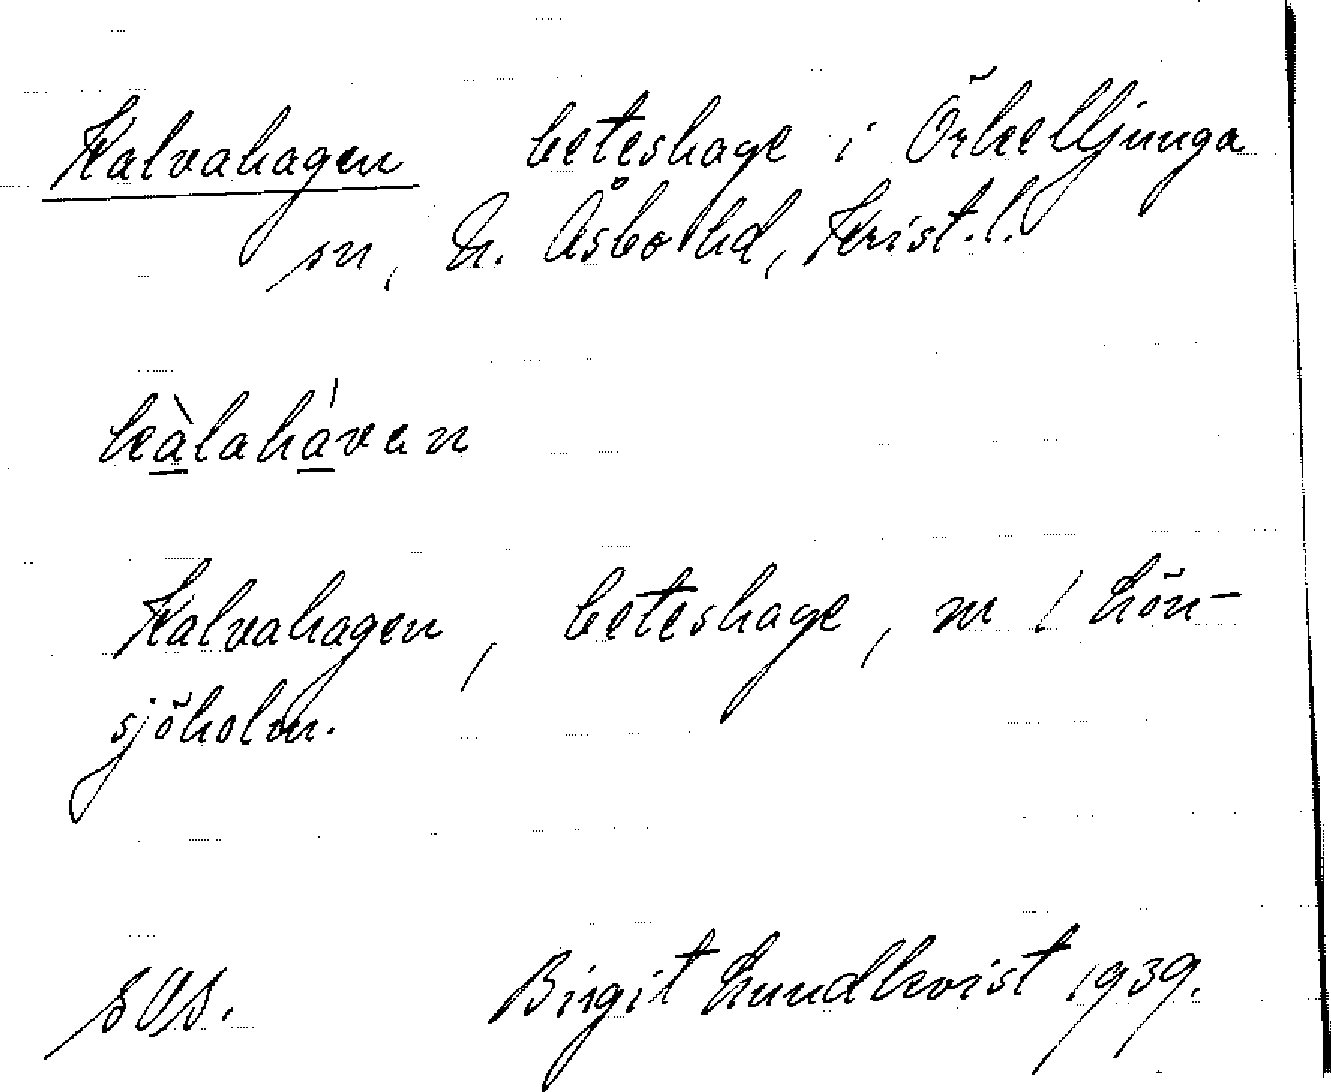 Kalvahagen beteshage i Örkelljunga
sn, N. Åsbo hd, Krist. l.
kàlahávan
Kalvahagen, beteshage, m / Lön-
sjöholm.
Birgit Lundkvist 1939.